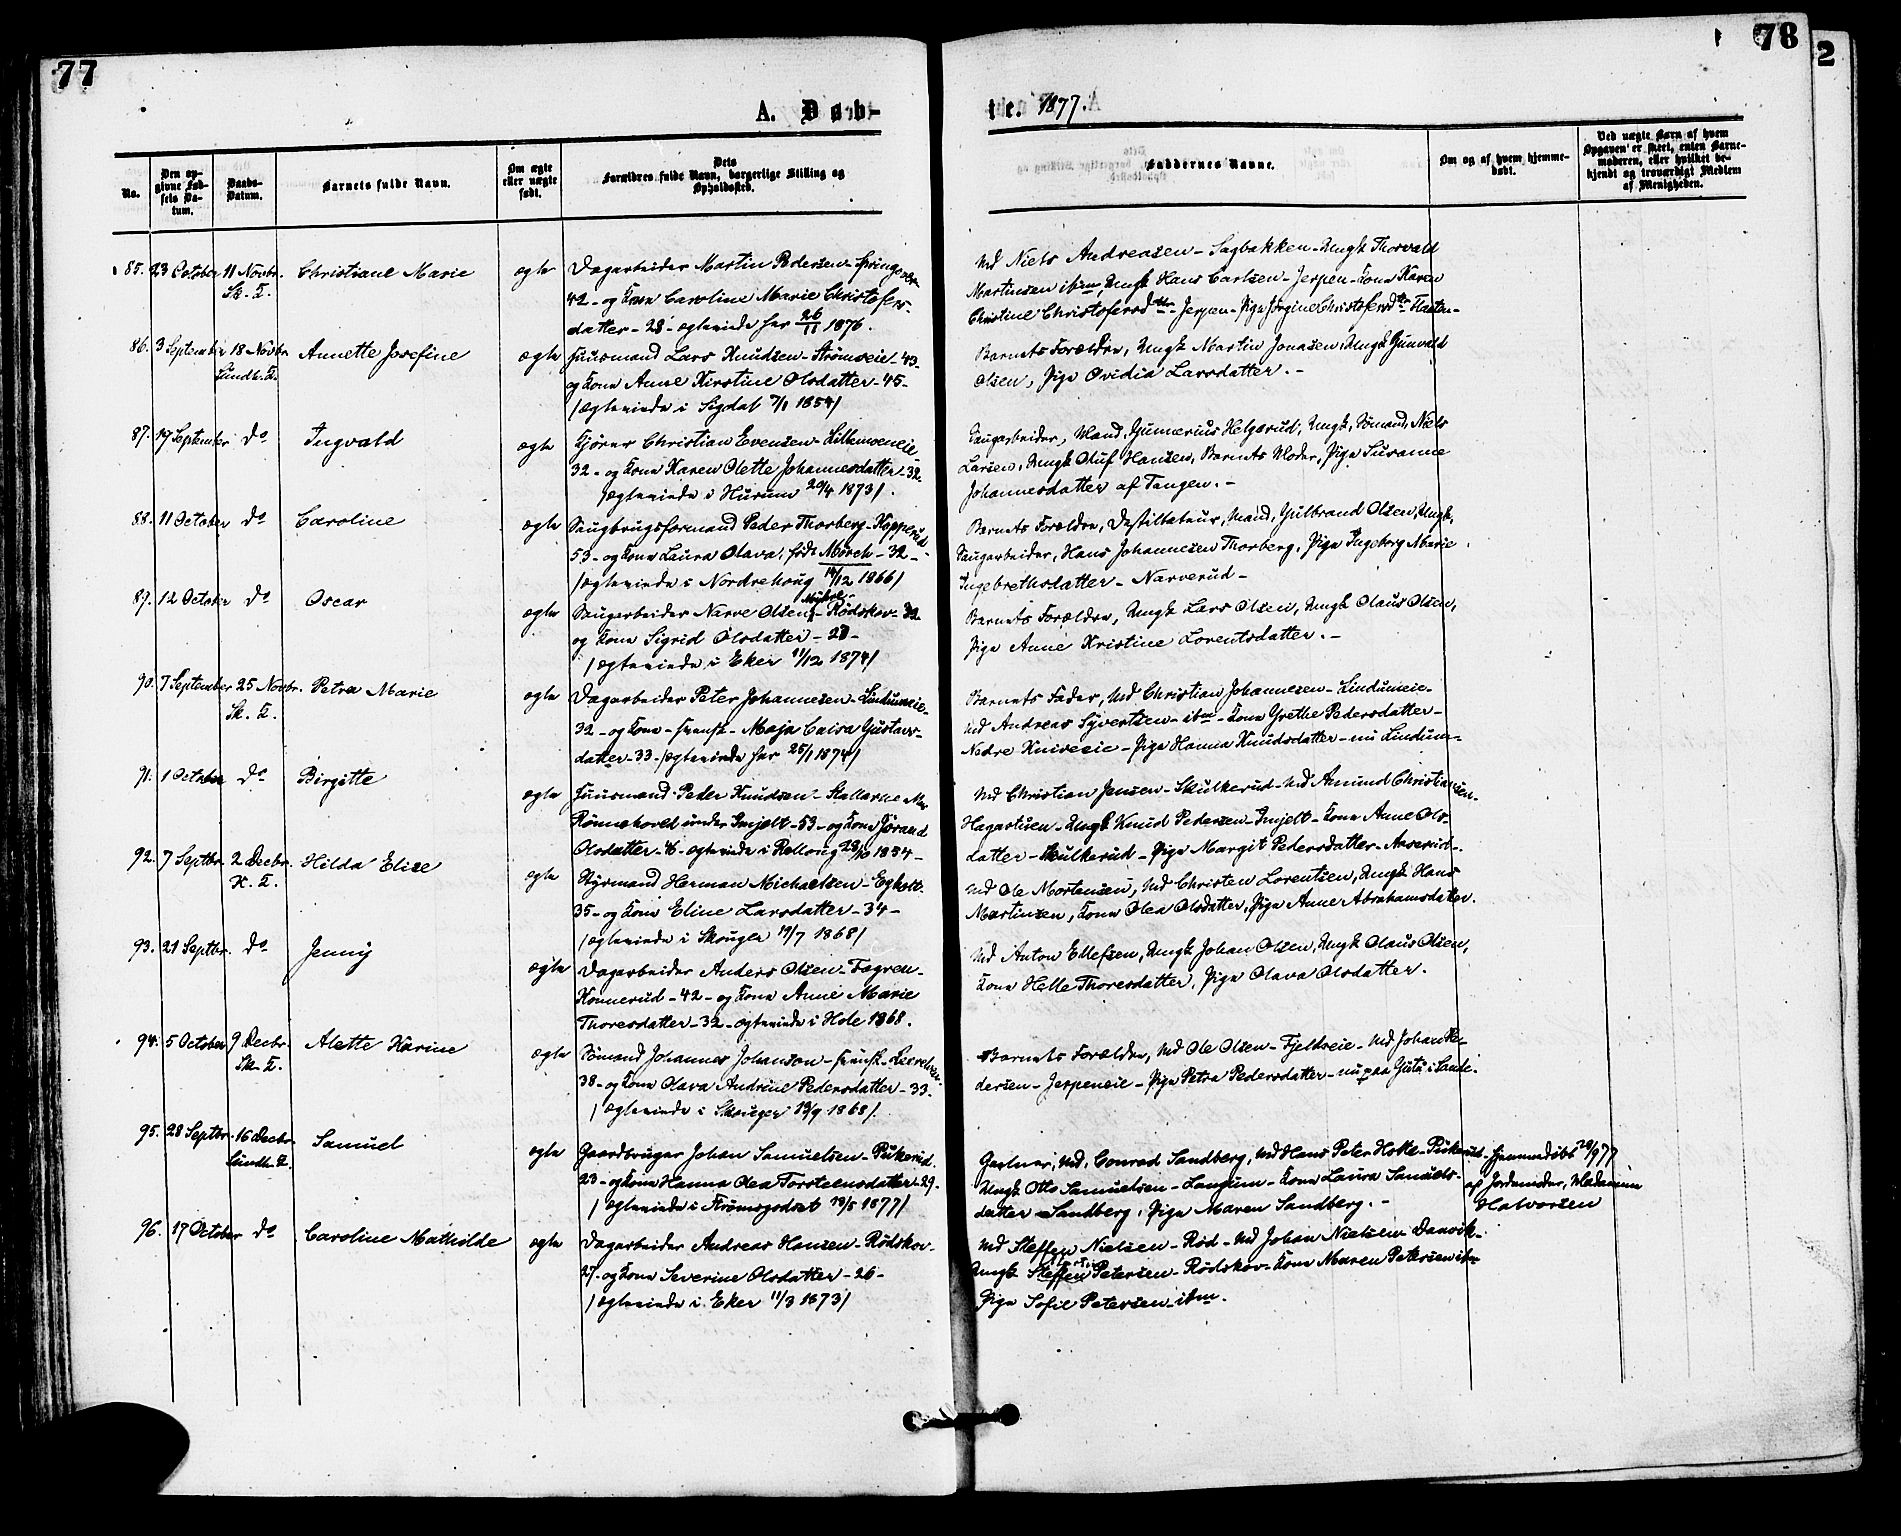 77
78
2
A. Døb-
te. 1877.
No.
Den op-
givne Fød-
sels Da-
tum.
Daabs-
Datum.
Barnets fulde Navn.
Om ægte
eller uægte
født.
Dets
Forældres fulde Navn, borgerlige Stilling og
Opholdssted.
Faddernes Navne.
Om og af hvem hjemme-
døbt.
Ved uægte Barn af hvem
Opgaven er skeet, enten Barne-
moderen, eller hvilket be-
kjendt og troværdigt Medlem
af Menigheden.
85. 23 October 11 Novbr. Christiane Marie ægte Dagarbeider Martin Pedersen - Springer
Sk. K. 42 - og Kone Caroline Marie Christofers-
datter - 28 - ægteviede her 26/11 1876.
Md Niels Andreasen - Sagbakken - Ungk Thorvald
Martinsen ibm, Ungk Hans Carlsen - Jerpen - Kone Karen
Christine Christofersdtr - Jerpen - Pige Jørgine Christofersdtr
86. 3 September 18 Novbr. Annette Josefine ægte Huusmand Lars Knudsen - Strømseie - 43 -
Lundh. K. og Kone Anne Kirstine Olsdatter - 45 -
/ægteviede i Sigdal 7/1 1854/
Barnets Forældre, Ungk Martin Jonasen, Ungk Gunvald
Olsen, Pige Ovidia Larsdatter. -
87. 17 September do Ingvald ægte Kjører Christian Evensen - Lillemoeneie -
32 - og Kone Karen Olette Johannesdatter - 32 -
/ægteviede i Hurum 20/4 1873/.
Saugarbeider, Mand, Gunnerius Helgerud, Ungk, Sømand, Niels
Larsen, Ungk Oluf Hansen, Barnets Moder, Pige Susanne
Johannesdatter af Tangen. -
88. 11 October do Caroline ægte Saugbrugsformand Peder Thorberg - Kopperud
53 - og Kone Laura Olava, født Mørch - 32 -
/ægteviede i Nordrehoug 14/12 1866/
Barnets Forældre, Destillateur, Mand, Gulbrand Olsen, Ungk,
Saugarbeider, Hans Johannesen Thorberg, Pige Ingeborg Marie
Ingebrethsdatter - Narverud -
89. 12 October do Oscar ægte Saugarbeider Narve Olsen - Rødskov - 32
og Kone Sigrid Olsdatter - 28 -
/ægteviede i Eker 11/12 1874/
Barnets Forældre, Ungk Lars Olsen, Ungk Olaus Olsen,
Pige Anne Kristine Lorentsdatter. -
90. 7 September 25 Novbr. Petra Marie ægte Dagarbeider Peter Johannesen - Lindumeie -
Sk. K. 32 - og Kone - svensk - Maja Caisa Gustavs-
datter - 33 - /ægteviede her 25/1 1874/
Barnets Fader, Md Christian Johannesen - Lindumeie -
Md Andreas Syvertsen - ibm - Kone Grethe Pedersdatter -
Nedre Kniveeie - Pige Hanna Knudsdatter - nu Lindum -
91. 1 October do Birgitte ægte Huusmand Peder Knudsen - Stallerne
Rønnehoved under Imjelt - 53 - og Kone Jørand
Olsdatter - 46 - ægteviede i Rolloug 29/10 1854 -
Md Christian Jensen - Skulkerud - Md Amund Christiansen -
Hagastuen - Ungk Knud Pedersen - Imjelt - Kone Anne Ols-
datter - Skulkerud - Pige Margit Pedersdatter - Aaserud -
92. 7 Septbr. 2 Decbr. Hilda Elise ægte Styrmand Herman Michaelsen - Egholt -
K. K. 35 - og Kone Eline Larsdatter - 34 -
/ægteviede i Skouger 19/7 1868/
Md Ole Mortensen, Md Christen Lorentsen, Ungk Hans
Martinsen, Kone Olea Olsdatter, Pige Anne Abrahamsdatter.
93. 21 Septbr. do Jenny ægte Dagarbeider Anders Olsen - Fagren -
Konnerud - 42 - og Kone Anne Marie
Thoresdatter - 32 - ægteviede i Hole 1868.
Md Anton Ellefsen, Ungk Johan Olsen, Ungk Olaus Olsen,
Kone Helle Thoresdatter, Pige Olava Olsdatter.
94. 5 October 9 Decbr. Alette Karine ægte Sømand Johannes Johanson - svensk -
Sk. K. 38 - og Kone Olava Andrine Pedersdatter - 33.
/ægteviede i Skouger 13/9 1868/.
Barnets Forældre, Md Ole Olsen - Fjeldseie - Md Johan Pe-
dersen - Jerpeneie - Pige Petra Pedersdatter - nu paa
95. 28 Septbr. 16 Decbr. Samuel ægte Gaardbruger Johan Samuelsen - Pukerud.
Lundh. K. 23 - og Kone Hanna Olea Torsteensdatter - 29 -
/ægteviede i Strømsgodset 18/5 1877/
Gartner, Md, Conrad Sandberg, Md Hans Peter Holte - Pukerud -
Ungk Otto Samuelsen - Langum - Kone Laura Samuels-
datter - Sandberg, Pige Maren Sandberg. -
Hjemmedøbt 28/9 77
af Jordemoder, Madamme
Halvorsen
96. 17 October do Caroline Mathilde ægte Dagarbeider Andreas Hansen - Rødskov -
27 - og Kone Severine Olsdatter - 26 -
/ægteviede i Eker 11/3 1873/
Md Steffen Nielsen - Rød - Md Johan Nielsen Danvik -
Ungk Steffen Petersen - Rødskov - Kone Maren Petersen ibm
Pige Sofie Petersen - ibm.